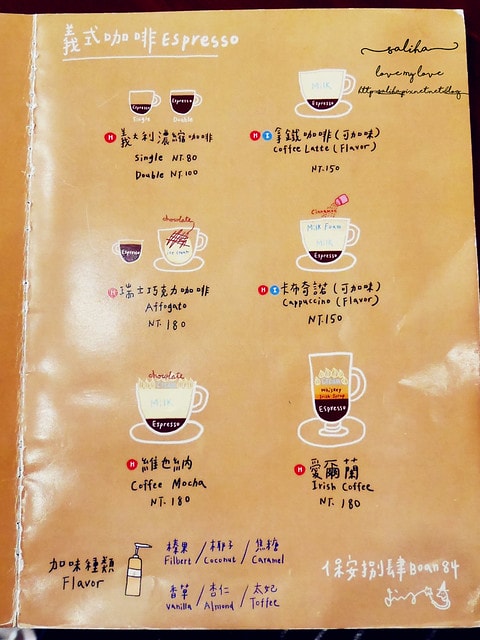 義式咖啡 Espresso
saliha
love my love
Espresso Espresso
Single Double
MILK
Espresso
H 義大利濃縮咖啡
Single NT.80
Double NT.100
H I 拿鐵咖啡(可加味)
Coffee Latte (Flavor)
NT.150
chocolate
Espresso ice cream
Cinnamon
Milk Foam
MILK
Espresso
H 瑞士巧克力咖啡
Affogato
NT. 180
H I 卡布奇諾(可加味)
Cappuccino (Flavor)
NT.150
chocolate
MILK
Espresso
Whiskey
Irish Syrup
Espresso
H 維也納
Coffee Mocha
NT. 180
H 愛爾蘭
Irish Coffee
NT. 180
加味種類
Flavor
榛果/椰子/焦糖
Filbert/Coconut/Caramel
香草/杏仁/太妃
Vanilla/Almond/Toffee
保安捌肆 Boan 84